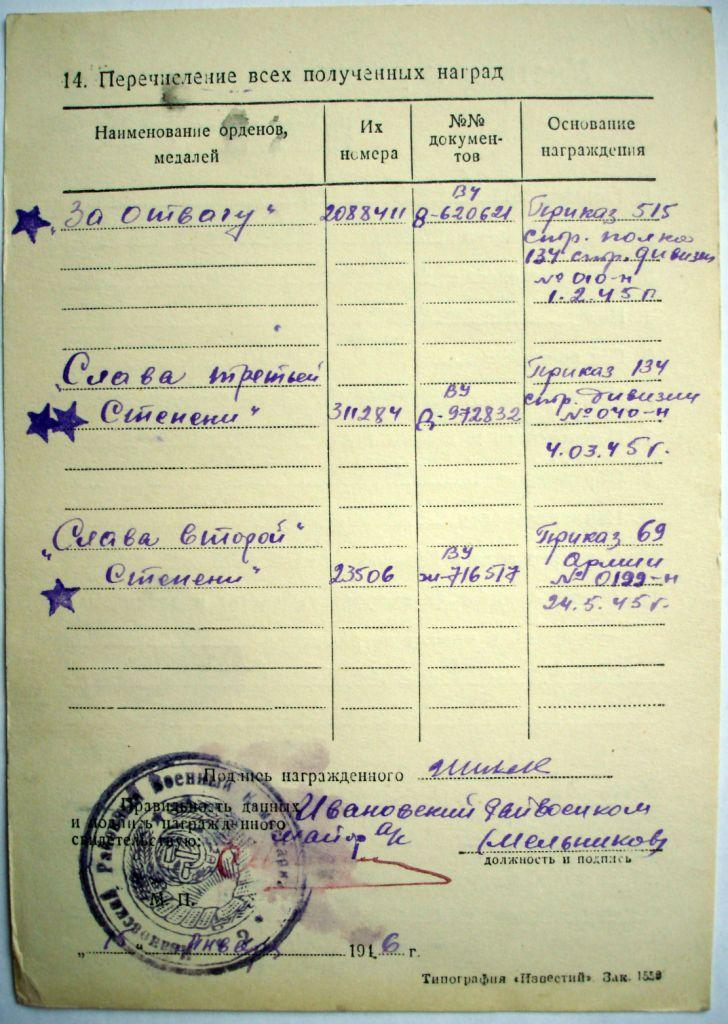 14. Перечисление всех полученных наград
Наименование орденов, медалей
Их номера
№№ документов
Основание награждения
„За отвагу“ 2088411 ВУ Д-620621 Приказ 515
стр. полка
134 стр. дивизии
№ 010-н
1.2.45 г.
„Слава третьей Приказ 134
Степени“ 311284 ВУ Д-972832 стр. дивизии
№ 040-н
4.03.45 г.
„Слава второй“ Приказ 69
Степени“ 23506 ВУ Ж-716517 Армии
№ 0199-н
24.5.45 г.
Подпись награжденного
Правильность данных Ивановский Райвоенком
и подпись награжденного
свидетельствую: майор (Мельников)
должность и подпись
М. П.
„15“ Января 1946 г.
Типография «Известий». Зак. 1559